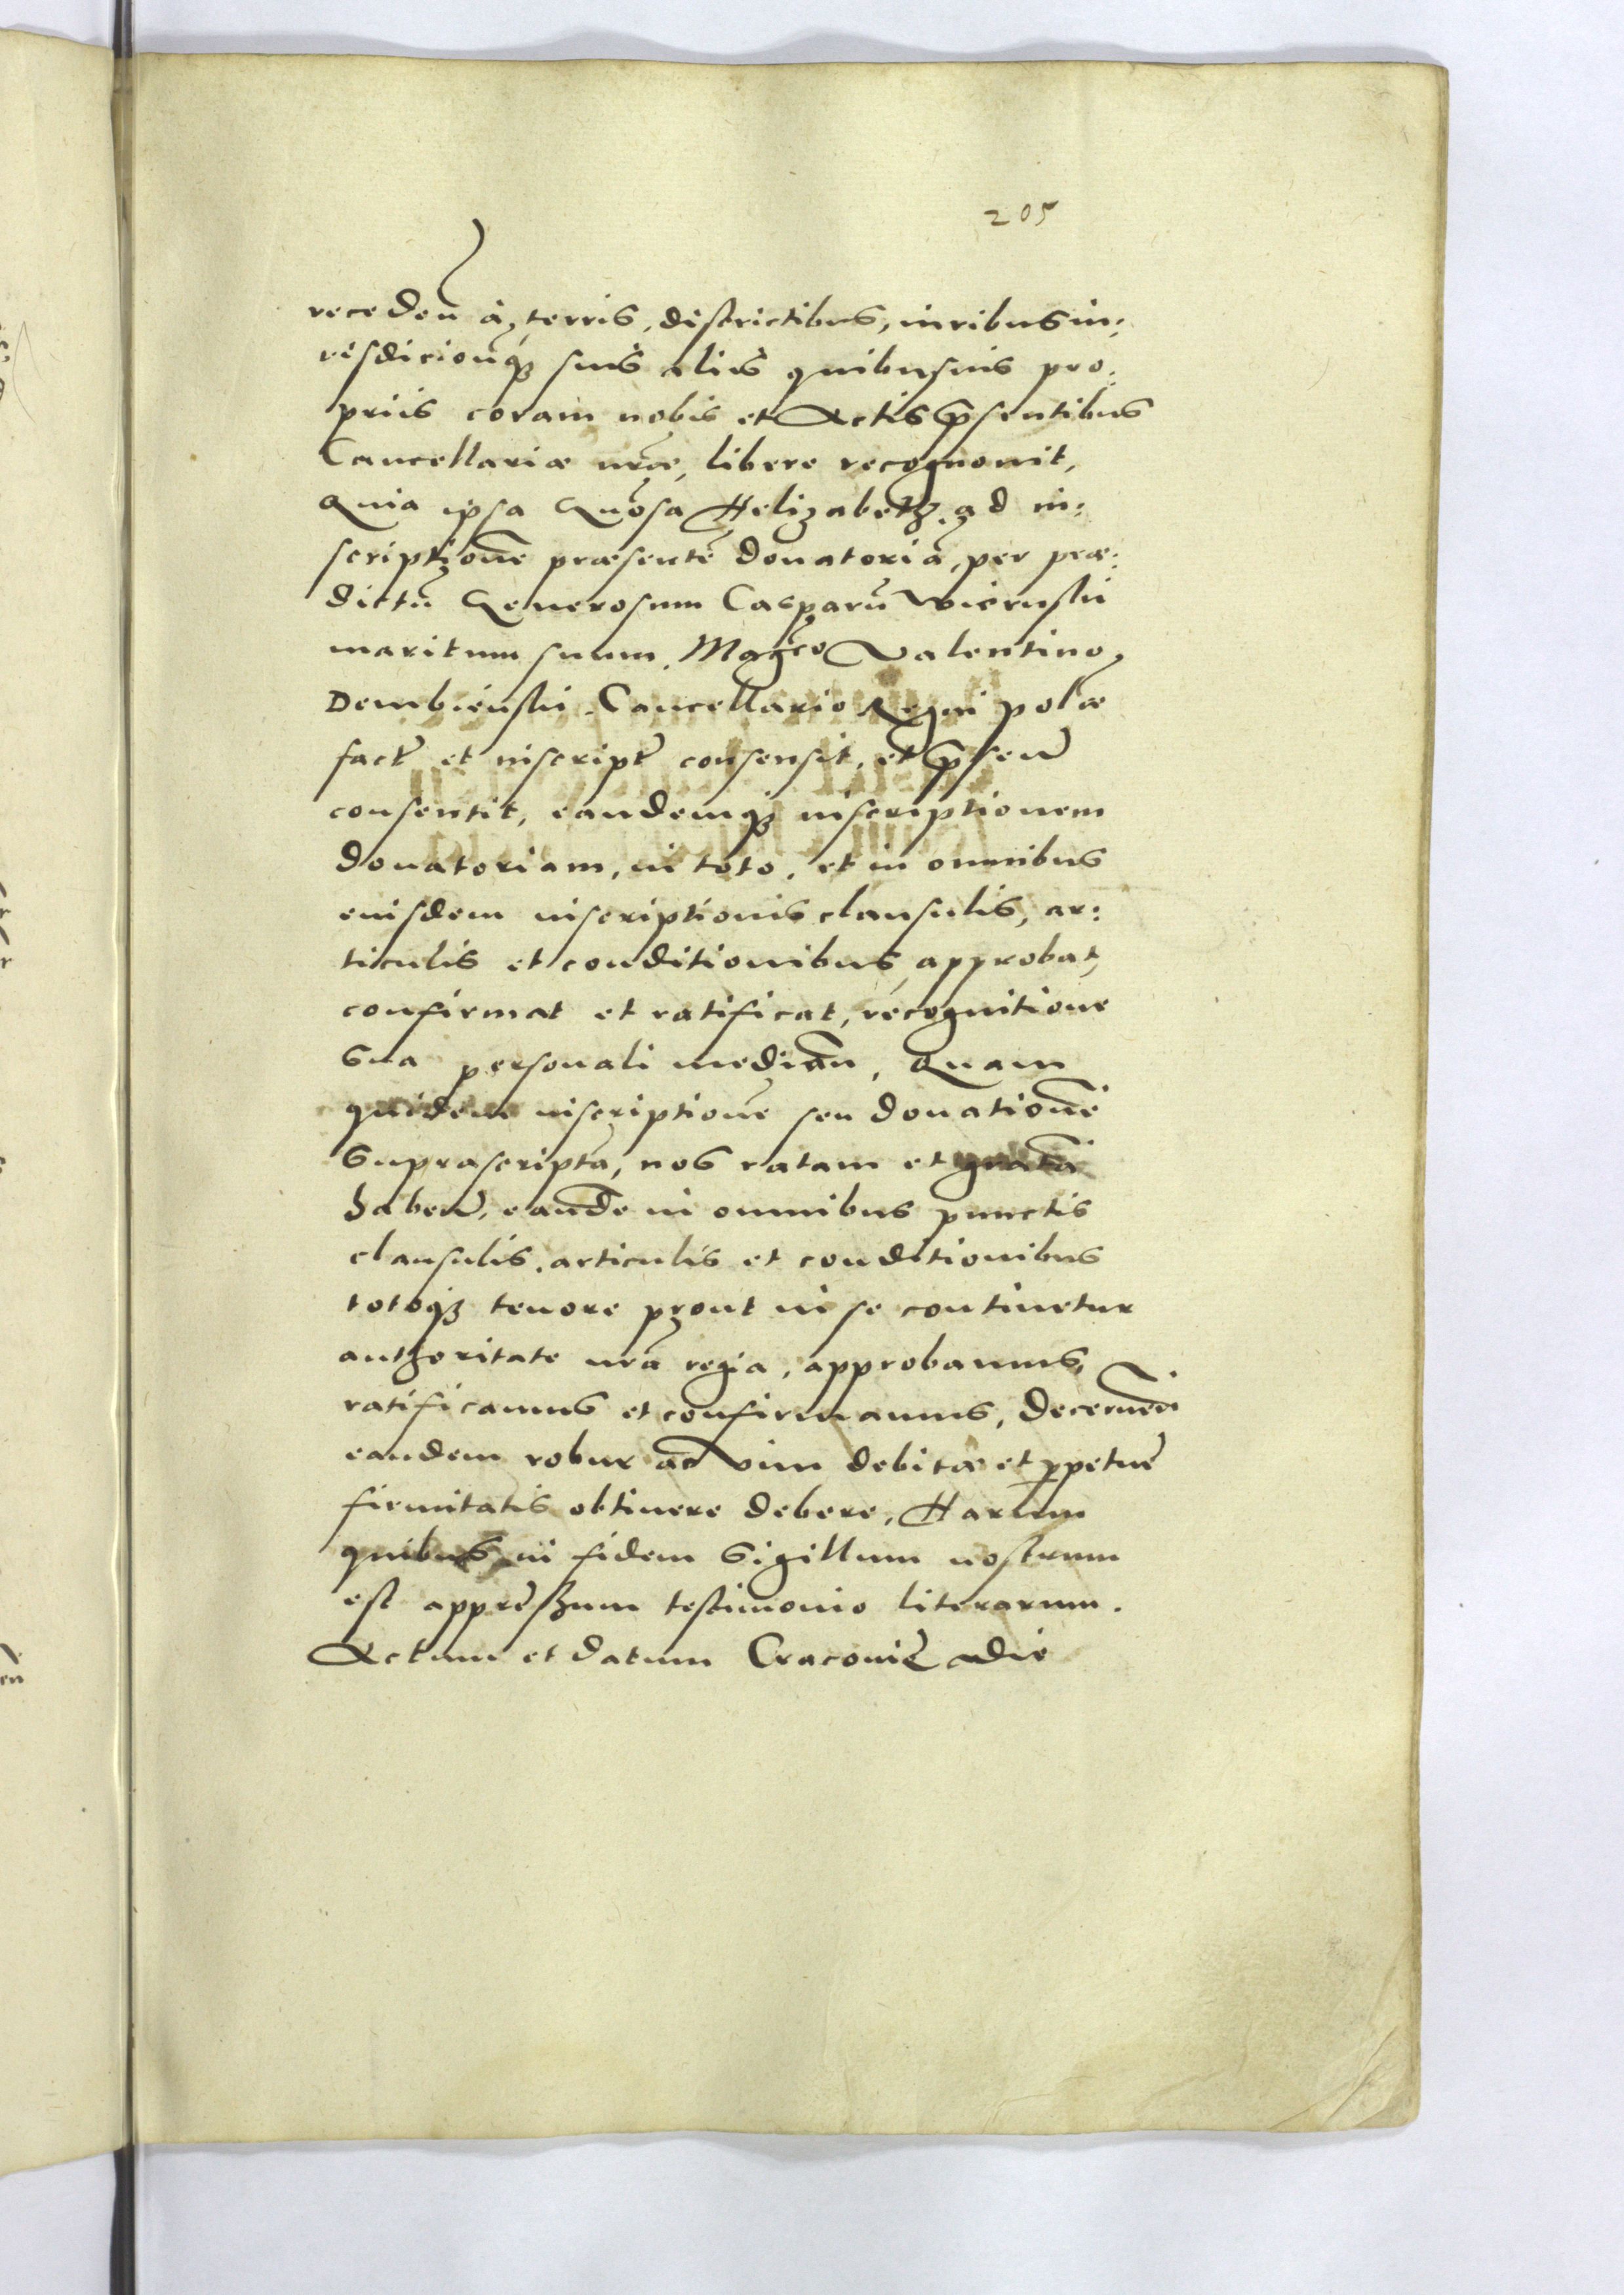 205
receden̄ à, terris, districtibus, iuribus iu:
risdicionūq₃ suis alius quibusuis pro:
priis coram nobis et Actis p̄sentibus
Cancellariæ nr̄æ, libere recognouit,
Quia ipsa Gn̄osa Helizabeth, ad in:
scriptionē præsentē donatoriā, per præ:
dictū Generosum Casparū Wiernski
maritum suum, Magco Valentino,
Dembienski, Cancellario Regni polæ
fact̄ et inscript̄ consensit, et p̄sen̄
consentit, eandemq₃ inscriptionem
donatoriam, in toto, et in omnibus
eiusdem inscriptionis clausulis, ar:
ticulis et conditionibus approbat,
confirmat et ratificat, recognitione
sua personali median̄, Quam
quidem inscriptionē seu donationē
suprascriptā, nos ratam et gratā
haben̄, eandē in omnibus punctis
clausulis, articulis et conditionibus
totoq₃ tenore prout in se continetur
authoritate nr̄a regia, approbamus,
ratificamus et confirmamus, decernen̄
eandem robur ac vim debitæ et ꝑpetuę
firmitatis obtinere debere, Harum
quibus in fidem sigillum nostrum
est appressum testimonio literarum.
Actum et datum Cracouię die